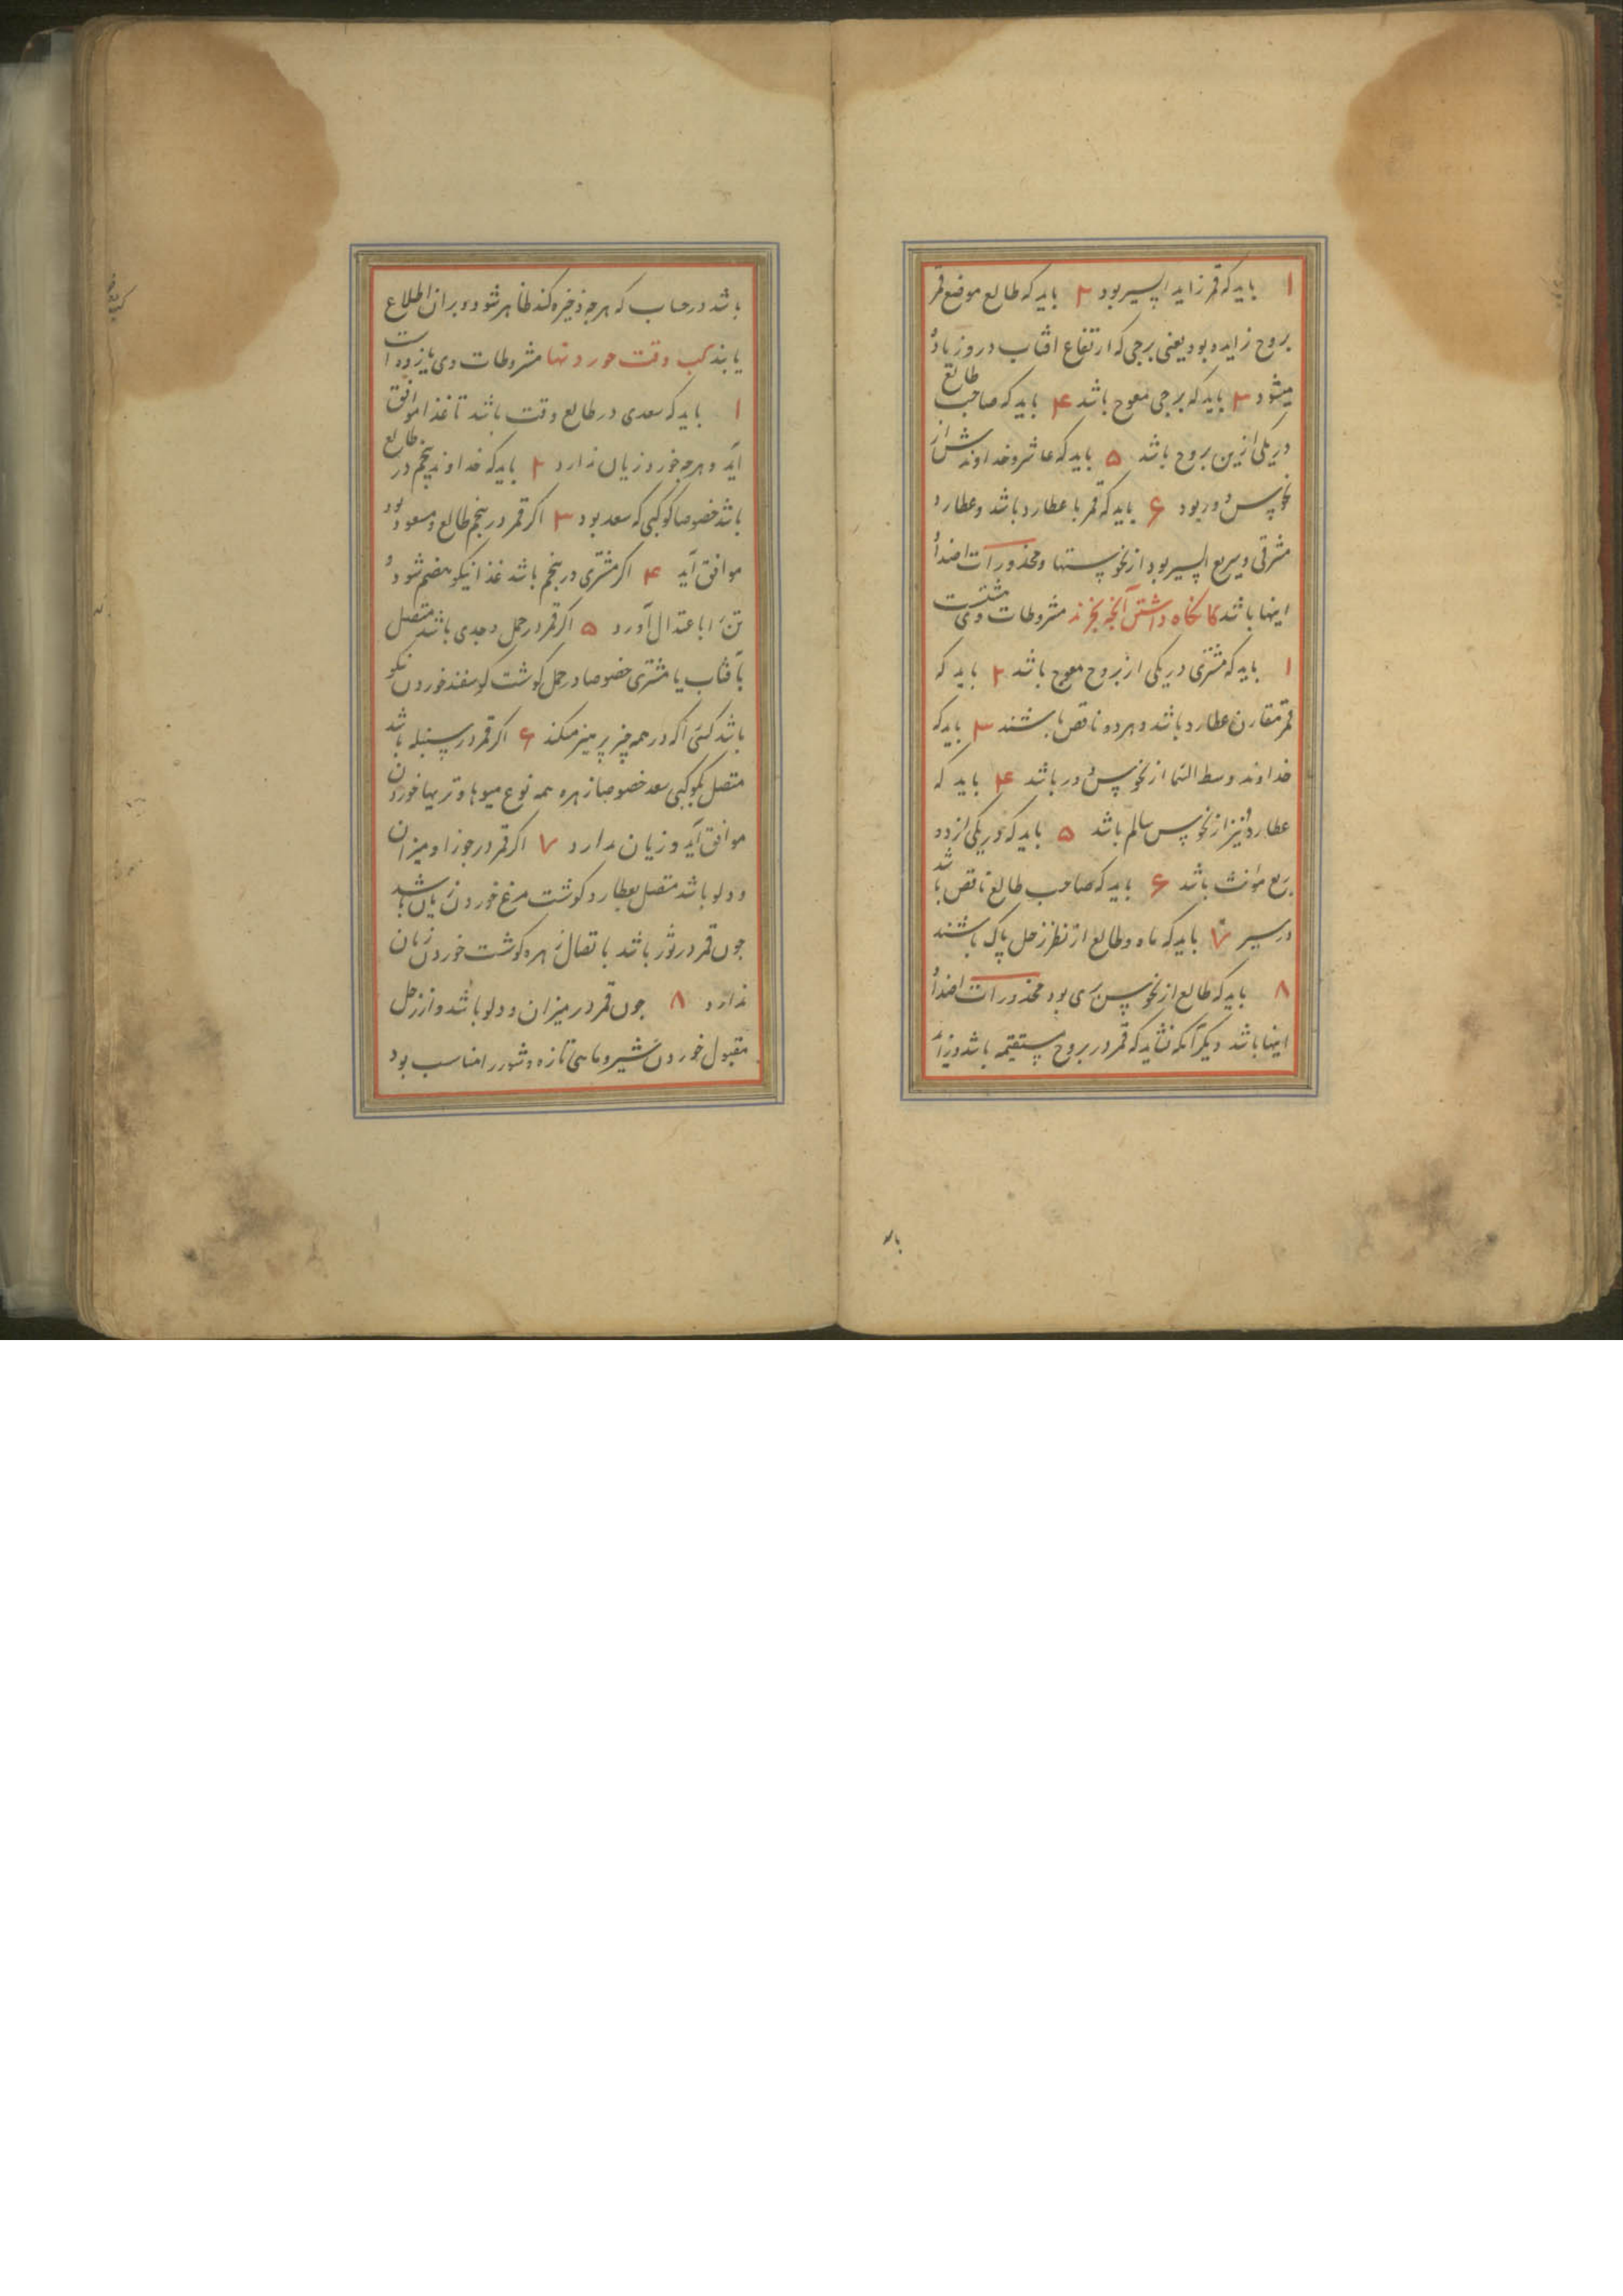 ۱ باید که قمر زاید السیر بود ۲ باید که طالع موضع قمر
بروج زایده بود یعنی برجی که ارتفاع افتاب در وزیاده
میشود ۳ باید که برجی معوج باشد ۴ باید که صاحب طالع
در یکی ازین بروج باشد ۵ باید که عاشر و خداوندش از
نحوس دور بود ۶ باید که قمر با عطارد باشد و عطارد
مشرقی و سریع السیر بود از نحوستها و محذورات اضداد
اینها باشد کا نکاه داشتن آنچه بخرند مشروطات وی هشتست
۱ باید که مشتری در یکی از بروج معوج باشد ۲ باید که
قمر مقارن عطارد باشد و هر دو ناقص باشند ۳ باید که
خداوند وسط السما از نحوس دور باشد ۴ باید که
عطارد نیز از نحوس سالم باشد ۵ باید که در یکی از دو
ربع مؤنث باشد ۶ باید که صاحب طالع ناقص باشد
در سیر ۷ باید که ماه و طالع از نظر زحل پاک باشند
۸ باید که طالع از نحوس بری بود محذورات اضداد
اینها باشد دیکر آنکه نشاید که قمر در بروج مستقیمه باشد و زاید
باشد در حساب که هرچه ذخیره کند ظاهر شود و بران اطلاع
یابند کب وقت خوردنها مشروطات وی یازده است
۱ باید که سعدی در طالع وقت باشد تا غذا موافق
آید و هرچه خورد زیان ندارد ۲ باید که خداوند پنجم در طالع
باشد خصوصا کوکبی که سعد بود ۳ اکر قمر در پنجم طالع و مسعود بود
موافق آید ۴ اکر مشتری در پنجم باشد غذا نیکو هضم شود و
تن را باعتدال آورد ۵ اکر قمر در حمل و جدی باشد متصل
بآفتاب یا مشتری خصوصا در حمل کوشت کوسفند خوردن نیکو
باشد کسی را که در همه چیز پرهیز میکند ۶ اکر قمر در سنبله باشد
متصل بکوکبی سعد خصوصا زهره همه نوع میوها و تریها خوردن
موافق آید و زیان ندارد ۷ اکر قمر در جوزا و میزان
و دلو باشد متصل بعطارد کوشت مرغ خوردن زیان باشد
چون قمر در ثور باشد باتصال زهره کوشت خوردن زیان
ندارد ۸ چون قمر در میزان و دلو باشد و از زحل
مقبول خوردن شیر و ماهی تازه و شور را مناسب بود